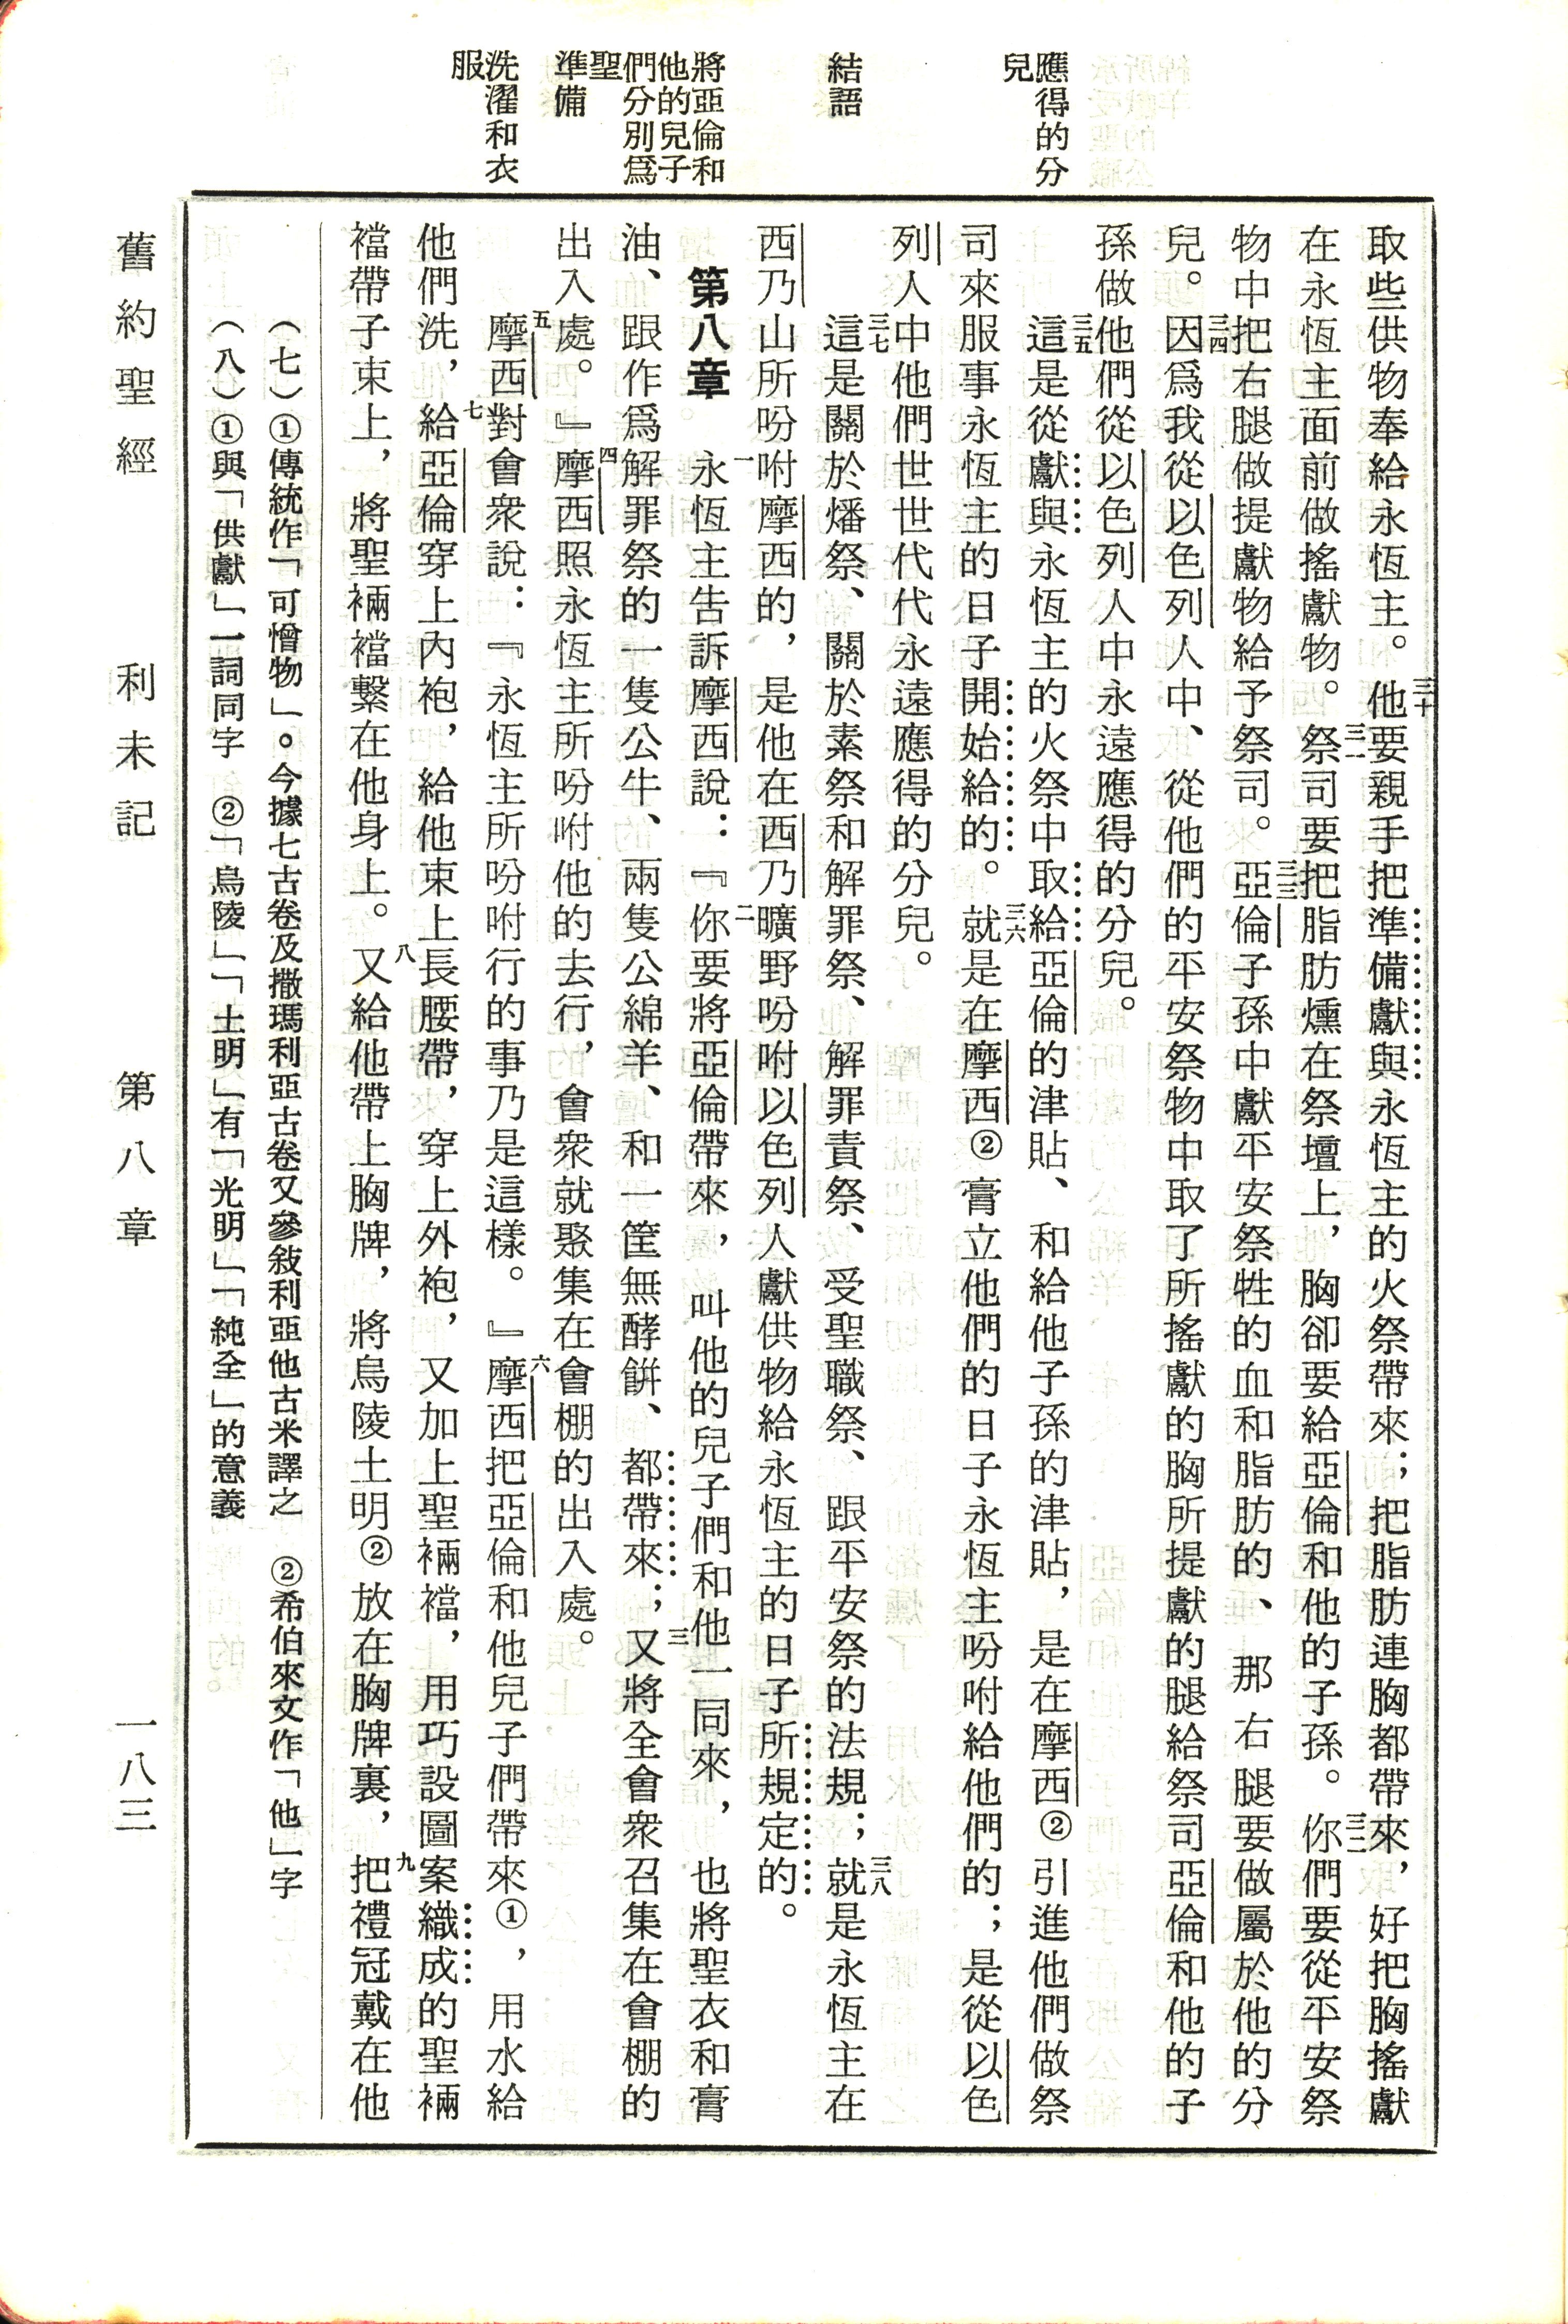 應得的分
兒
結語
將亞倫和
他的兒子
們分別爲
聖
準備
洗濯和衣
服
取些供物奉給永恆主。三十他要親手把準備獻與永恆主的火祭帶來；把脂肪連胸都帶來，好把胸搖獻
在永恆主面前做搖獻物。三一祭司要把脂肪燻在祭壇上，胸卻要給亞倫和他的子孫。三二你們要從平安祭
物中把右腿做提獻物給予祭司。三三亞倫子孫中獻平安祭牲的血和脂肪的、那右腿要做屬於他的分
兒。三四因爲我從以色列人中、從他們的平安祭物中取了所搖獻的胸所提獻的腿給祭司亞倫和他的子
孫做他們從以色列人中永遠應得的分兒。
三五這是從獻與永恆主的火祭中取給亞倫的津貼、和給他子孫的津貼，是在摩西②引進他們做祭
司來服事永恆主的日子開始給的。三六就是在摩西②膏立他們的日子永恆主吩咐給他們的；是從以色
列人中他們世世代代永遠應得的分兒。
三七這是關於燔祭、關於素祭和解罪祭、解罪責祭、受聖職祭、跟平安祭的法規；三八就是永恆主在
西乃山所吩咐摩西的，是他在西乃曠野吩咐以色列人獻供物給永恆主的日子所規定的。
第八章　一永恆主告訴摩西說：『二你要將亞倫帶來，叫他的兒子們和他一同來，也將聖衣和膏
油、跟作爲解罪祭的一隻公牛、兩隻公綿羊、和一筐無酵餅、都帶來；三又將全會衆召集在會棚的
出入處。』四摩西照永恆主所吩咐他的去行，會衆就聚集在會棚的出入處。
五摩西對會衆說：『永恆主所吩咐行的事乃是這樣。』六摩西把亞倫和他兒子們帶來①，用水給
他們洗，七給亞倫穿上內袍，給他束上長腰帶，穿上外袍，又加上聖裲襠，用巧設圖案織成的聖裲
襠帶子束上，將聖裲襠繫在他身上。八又給他帶上胸牌，將烏陵土明②放在胸牌裏，九把禮冠戴在他
（七）①傳統作「可憎物」。今據七古卷及撒瑪利亞古卷又參敍利亞他古米譯之　②希伯來文作「他」字
（八）①與「供獻」一詞同字　②「烏陵」「土明」有「光明」「純全」的意義
舊約聖經　利未記　第八章　一八三